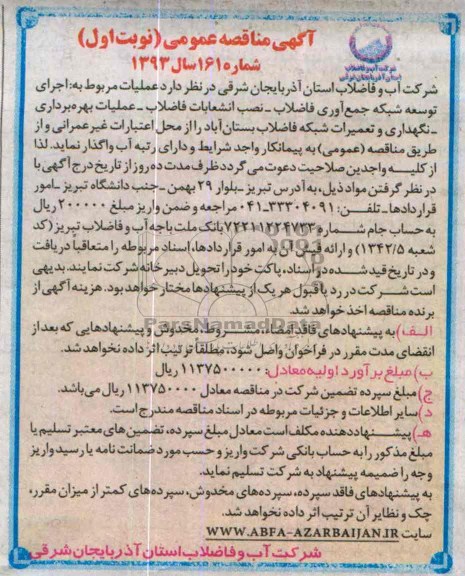 آگهی مناقصه عمومی (نوبت اول)
شماره ۱۶۱ سال ۱۳۹۳
شرکت آب و فاضلاب
استان آذربایجان شرقی
شرکت آب و فاضلاب استان آذربایجان شرقی در نظر دارد عملیات مربوط به: اجرای
توسعه شبکه جمع‌آوری فاضلاب ـ نصب انشعابات فاضلاب ـ عملیات بهره‌برداری
ـ نگهداری و تعمیرات شبکه فاضلاب بستان‌آباد را از محل اعتبارات غیرعمرانی و از
طریق مناقصه (عمومی) به پیمانکار واجد شرایط و دارای رتبه آب واگذار نماید. لذا
از کلیه واجدین صلاحیت دعوت می‌گردد ظرف مدت ده روز از تاریخ درج آگهی با
در نظر گرفتن مواد ذیل، به آدرس تبریز ـ بلوار ۲۹ بهمن ـ جنب دانشگاه تبریز ـ امور
قراردادها ـ تلفن: ۳۳۳۰۴۰۹۱-۰۴۱ مراجعه و ضمن واریز مبلغ ۲۰۰۰۰۰ ریال
به حساب جام شماره ۷۲۲۱۱۲۲۴۷۳۳ بانک ملت باجه آب و فاضلاب تبریز (کد
شعبه ۱۳۴۲/۵) و ارائه فیش آن به امور قراردادها، اسناد مربوطه را متعاقباً دریافت
و در تاریخ قید شده در اسناد، پاکت خود را تحویل دبیرخانه شرکت نمایند. بدیهی
است شرکت در رد یا قبول هر یک از پیشنهادها مختار خواهد بود. هزینه آگهی از
برنده مناقصه اخذ خواهد شد.
الف) به پیشنهادهای فاقد امضاء، مشروط، مخدوش و پیشنهادهایی که بعد از
انقضای مدت مقرر در فراخوان واصل شود، مطلقاً ترتیب اثر داده نخواهد شد.
ب) مبلغ برآورد اولیه معادل: ۱۱۳۷۵۰۰۰۰۰ ریال
ج) مبلغ سپرده تضمین شرکت در مناقصه معادل ۱۱۳۷۵۰۰۰۰ ریال می‌باشد.
د) سایر اطلاعات و جزئیات مربوطه در اسناد مناقصه مندرج است.
هـ) پیشنهاددهنده مکلف است معادل مبلغ سپرده، تضمین‌های معتبر تسلیم یا
مبلغ مذکور را به حساب بانکی شرکت واریز و حسب مورد ضمانت نامه یا رسید واریز
وجه را ضمیمه پیشنهاد به شرکت تسلیم نماید.
به پیشنهادهای فاقد سپرده، سپرده‌های مخدوش، سپرده‌های کمتر از میزان مقرر،
چک و نظایر آن ترتیب اثر داده نخواهد شد.
سایت WWW.ABFA-AZARBAIJAN.IR
شرکت آب و فاضلاب استان آذربایجان شرقی
ParsNamadData